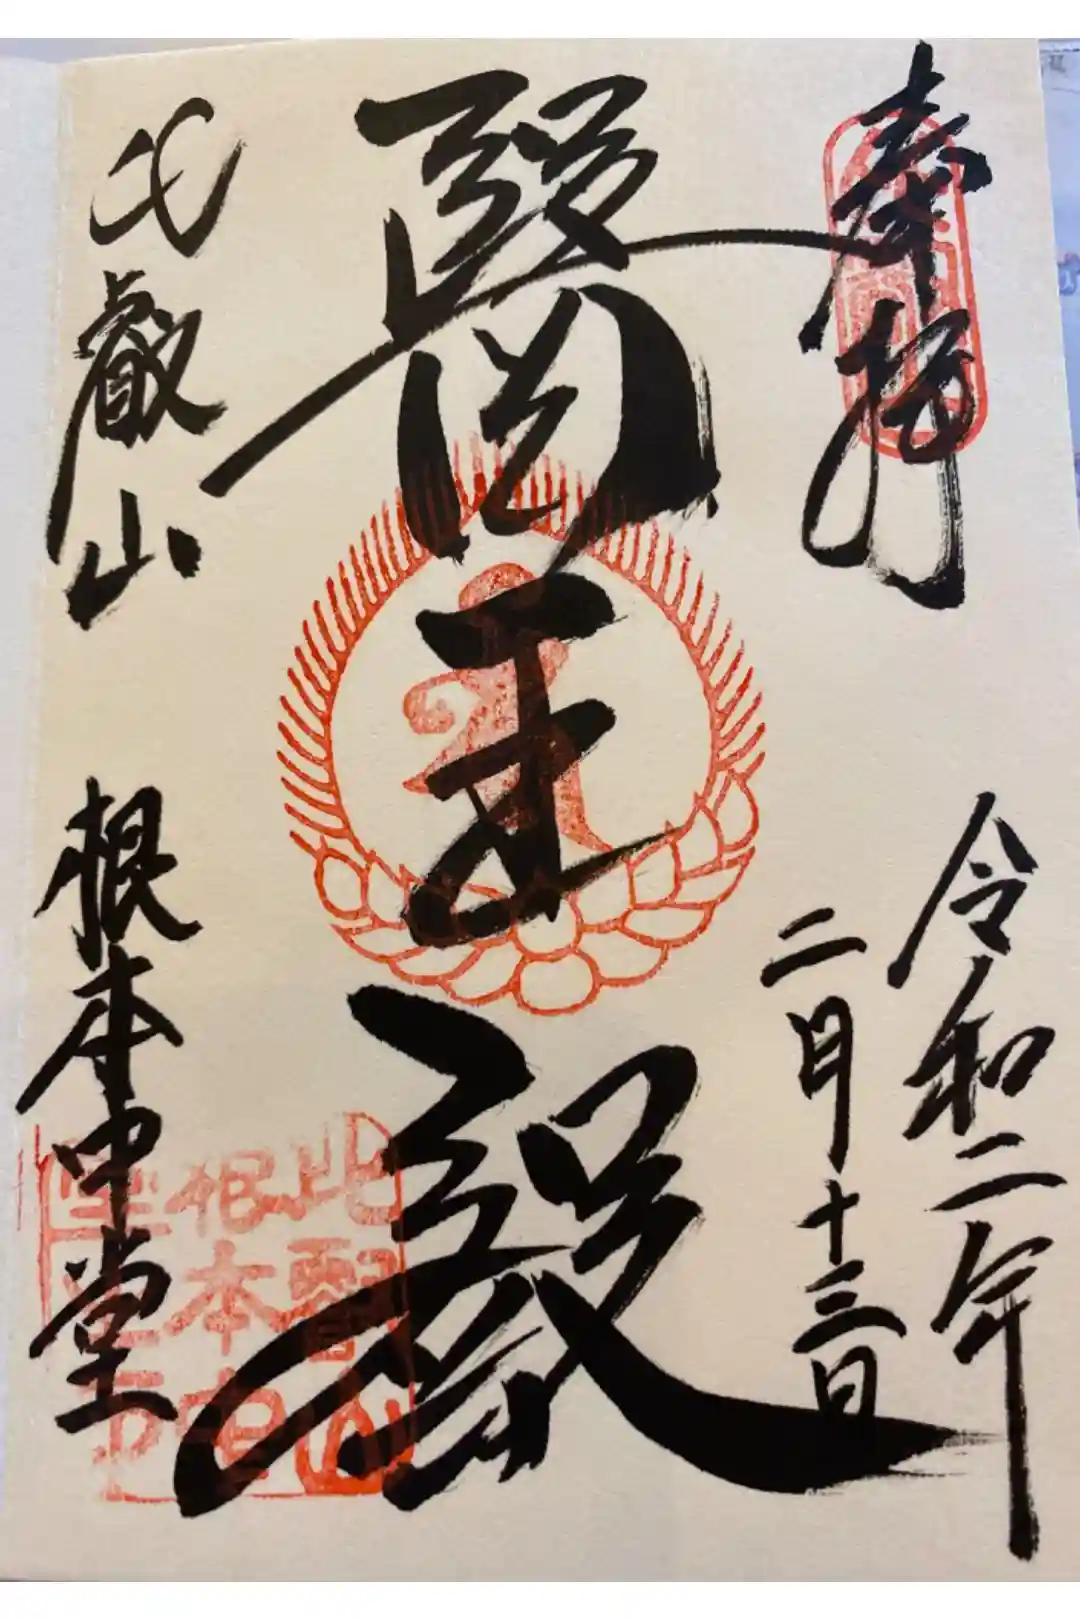 奉拝
令和二年
二月十三日
醫王殿
比叡山
根本中堂
比叡山
根本中
堂之印